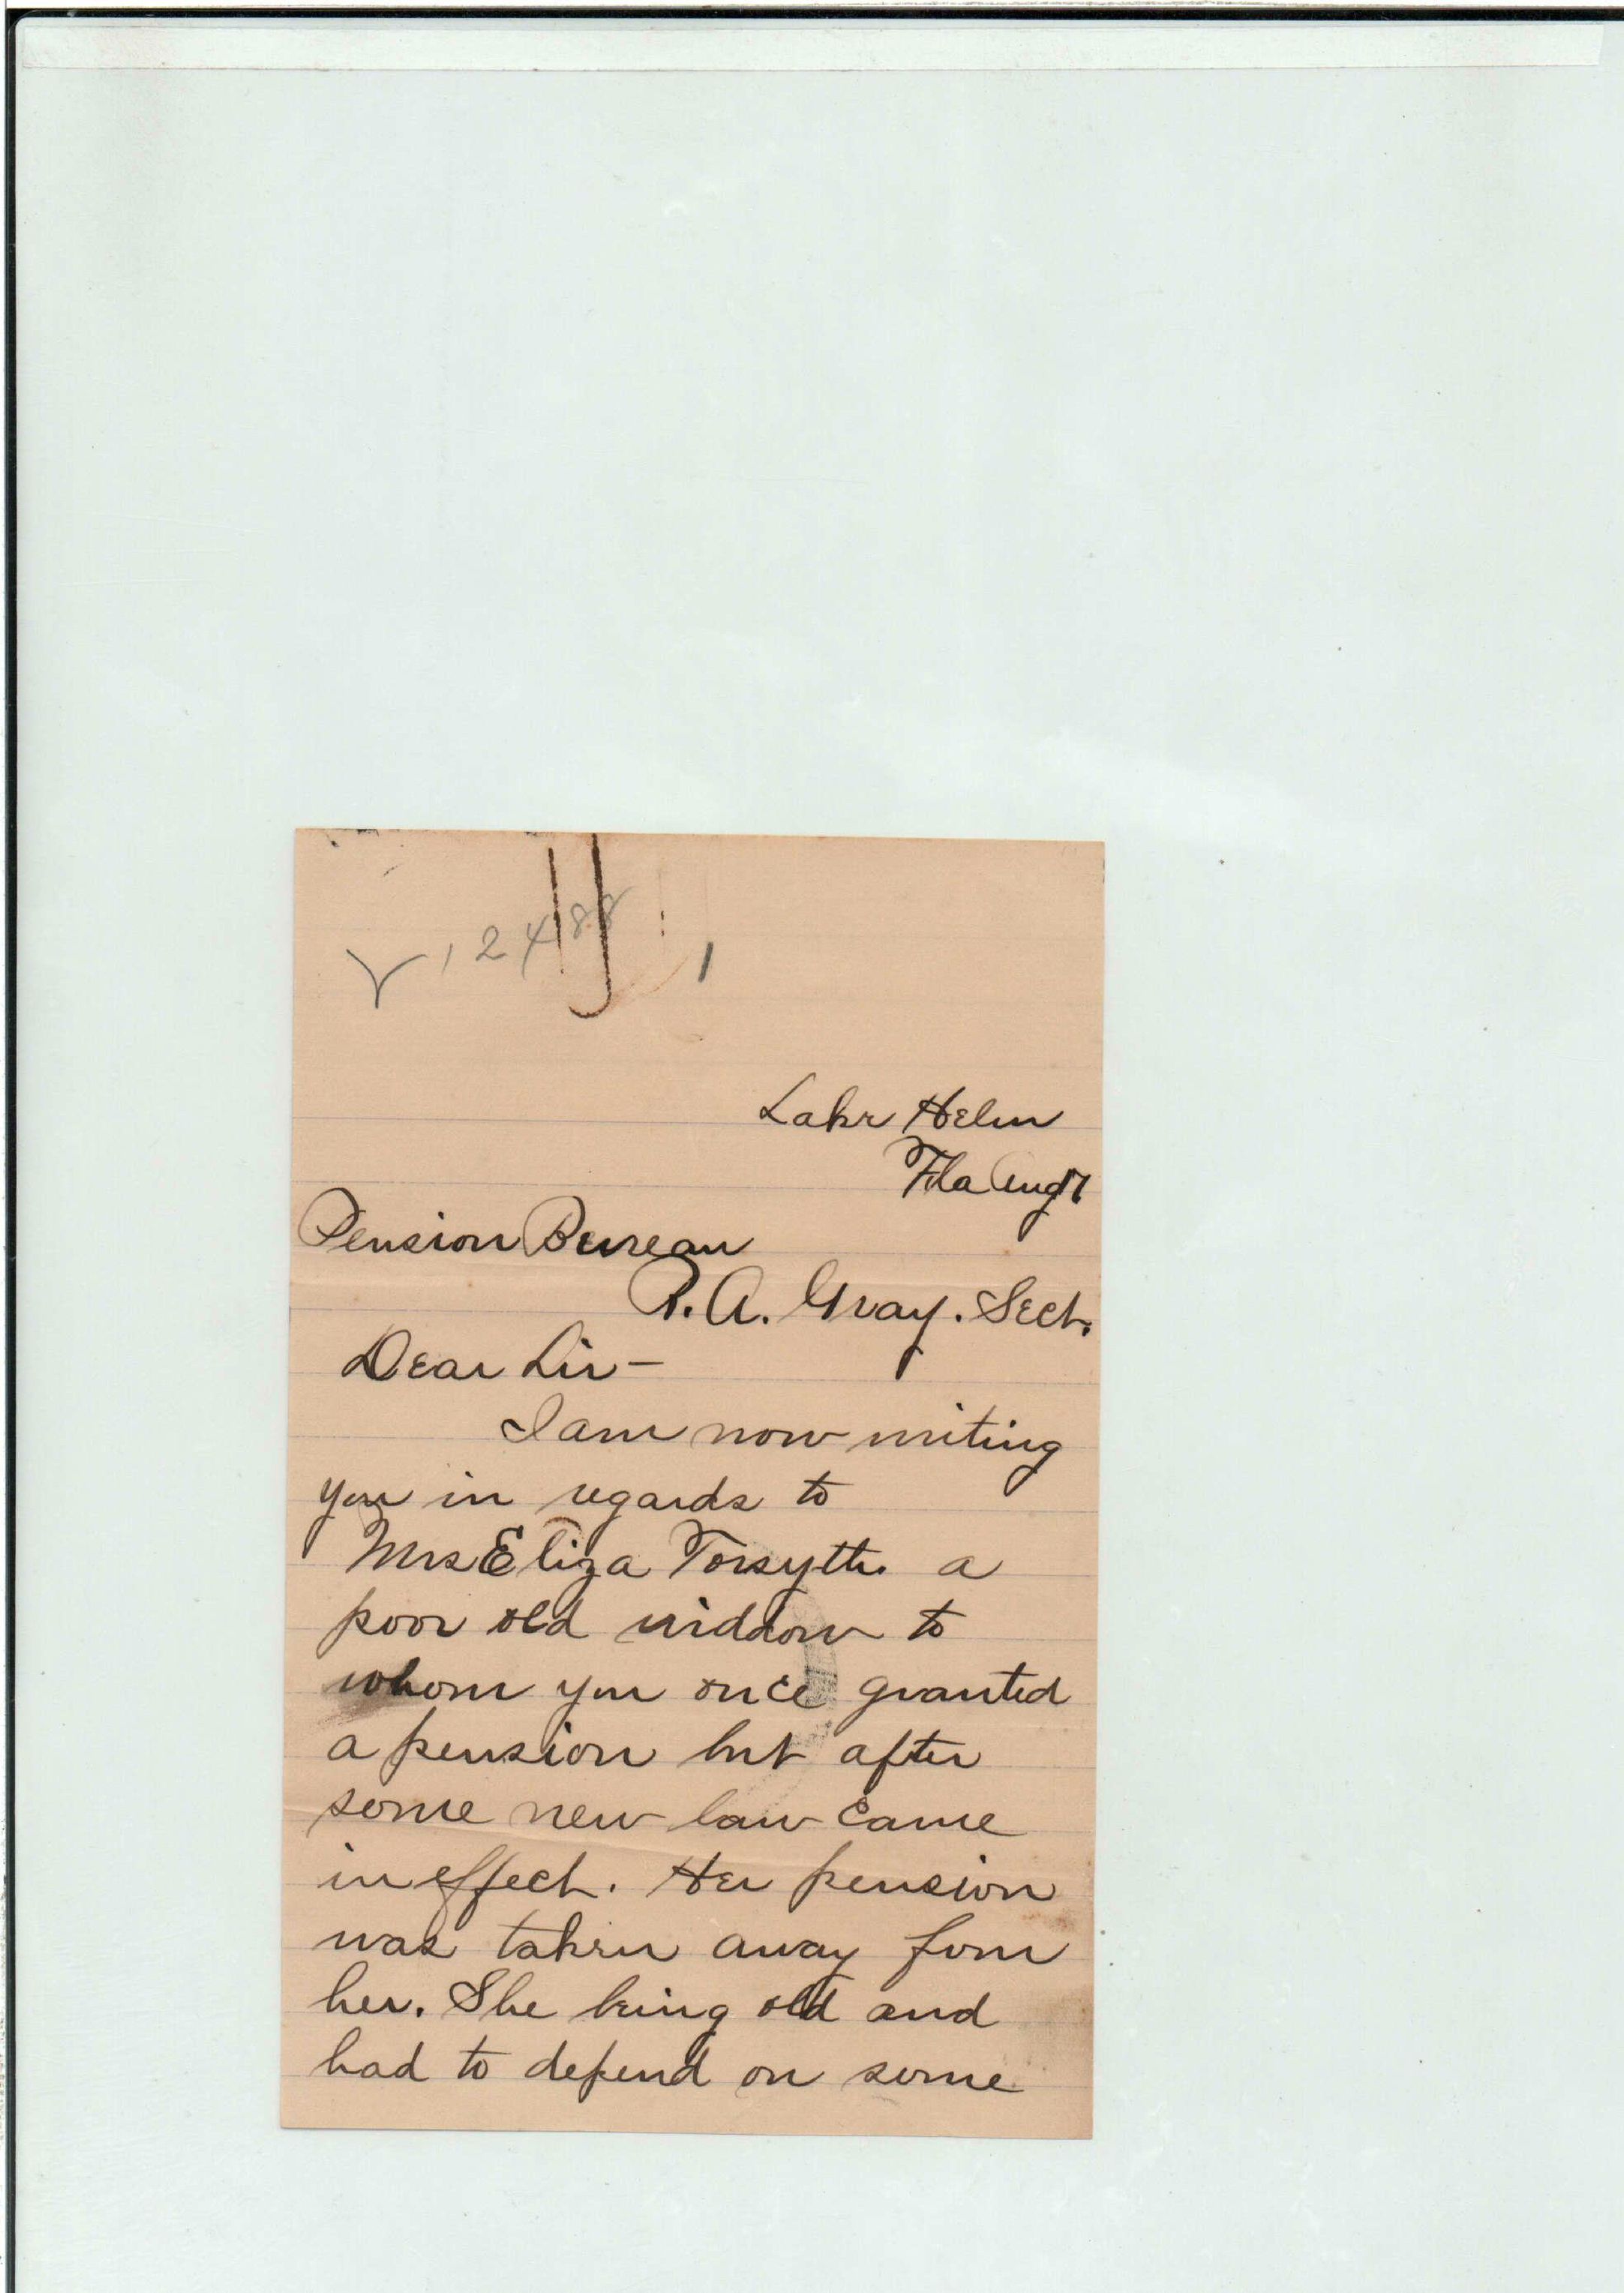 12488
Lake Helen
Fla Aug 7
Pension Bureau
R. A. Gray. Sect.
Dear Sir -
I am now writing
you in regards to
Mrs Eliza Forsyth. a
poor old widdow to
whom you once granted
a pension but after
some new law came
in effect. Her pension
was taken away from
her. She being old and
had to depend on some